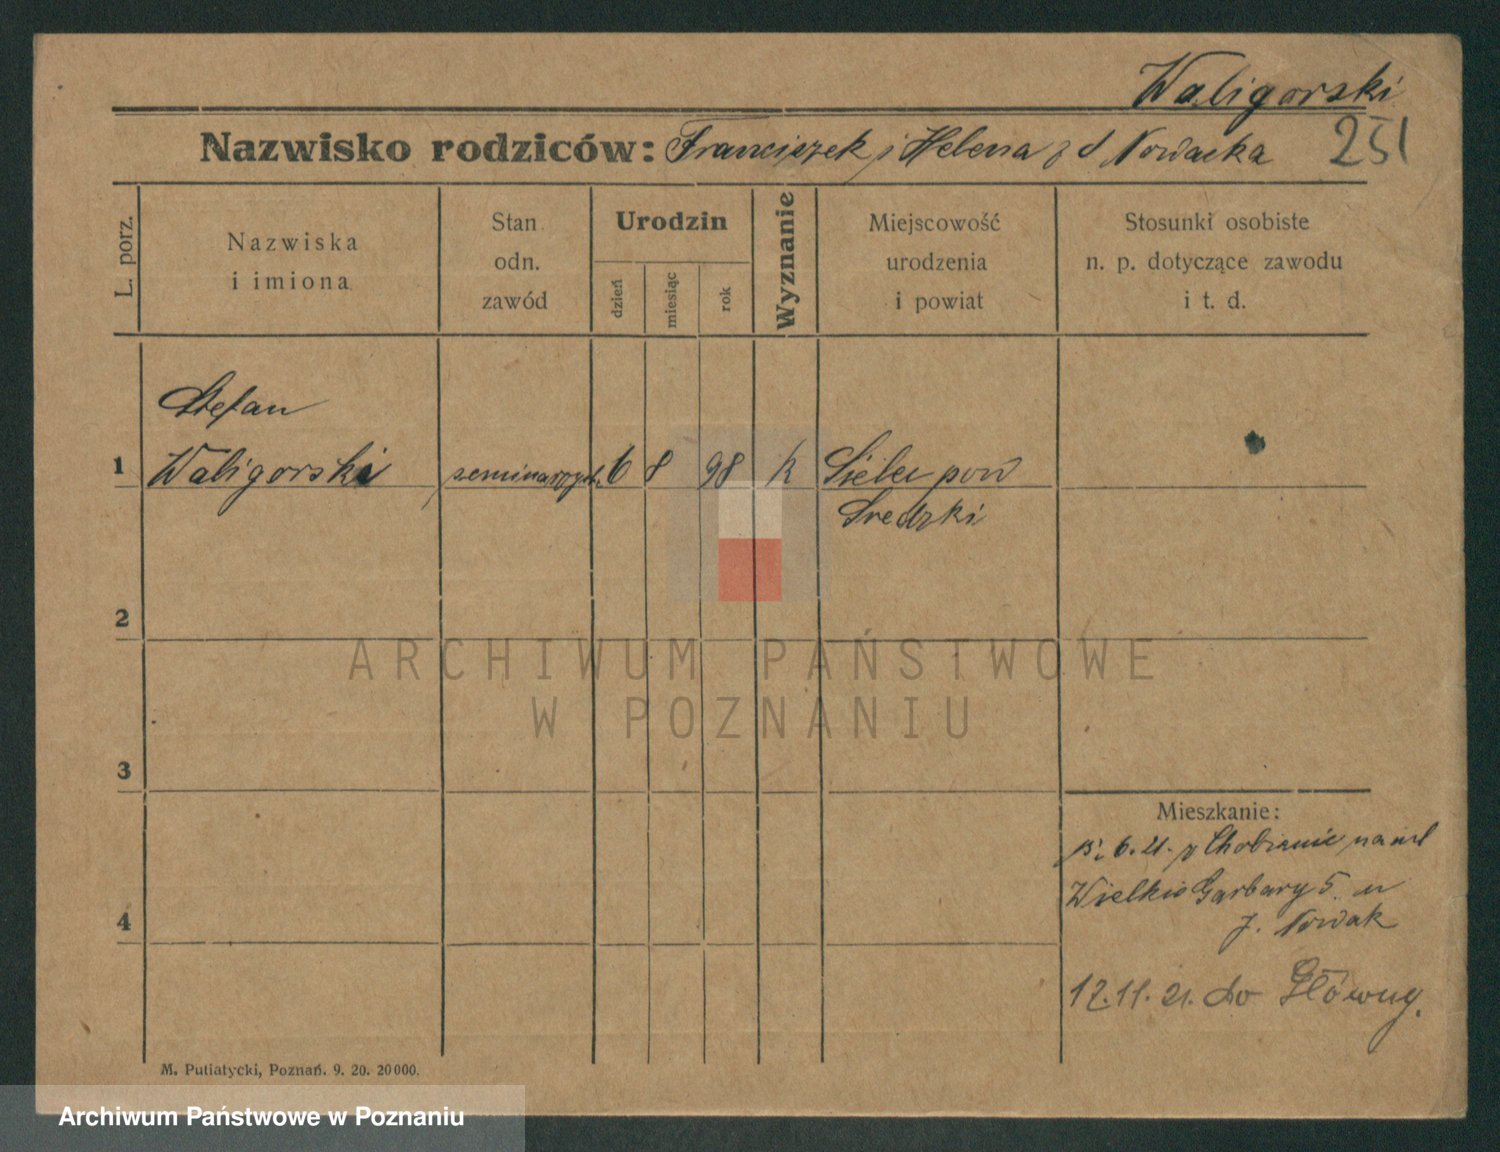 Waligorski
Nazwisko rodziców: Franciszek i Helena z d Nowacka
251
L. porz.
Nazwiska
i imiona
Stan
odn.
zawód
Urodzin
dzień
miesiąc
rok
Wyznanie
Miejscowość
urodzenia
i powiat
Stosunki osobiste
n. p. dotyczące zawodu
i t. d.
Stefan
1 Waligorski seminarzyst. 6 8 98 k pow
Sredzki
2
3
4
Mieszkanie:
6.21. z
Wielkie Garbary 5. u
J. Nowak
12.11.21. do Główny.
M. Putiatycki, Poznań. 9. 20. 20000.
ARCHIWUM PAŃSTWOWE
W POZNANIU
Archiwum Państwowe w Poznaniu